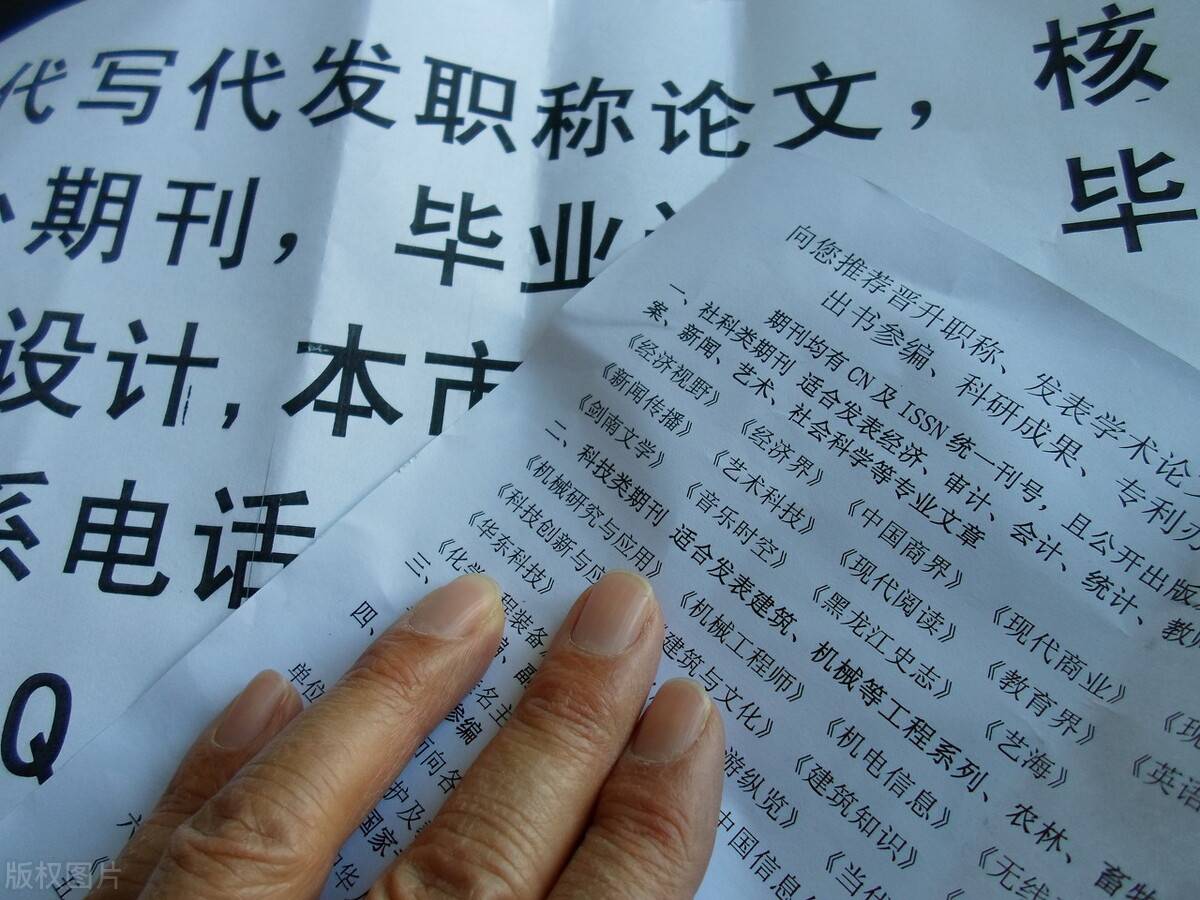 代写代发职称论文， 核
期刊， 毕业 毕
设计, 本市
电话
Q
向您推荐晋升职称、发表学术论
出书参编、科研成果、专利
期刊均有 CN 及 ISSN 统一刊号，且公开出版
一、社科类期刊 适合发表经济、审计、会计、统计、教
案、新闻、艺术、社会科学等专业文章
《经济视野》 《经济界》 《中国商界》 《现代商业》
《新闻传播》 《艺术科技》 《现代阅读》 《教育界》 《英语
《剑南文学》 《音乐时空》 《黑龙江史志》 《艺海》
二、科技类期刊 适合发表建筑、机械等工程系列、农林、畜牧
《机械研究与应用》 《机械工程师》 《机电信息》 《无线
《科技创新与应 建筑与文化》 《建筑知识》
《华东科技》 游纵览》 《当代
《化学 程装备 中国信息
三、
四、
单位
参编
面向各
护及
国家
华
六
版权图片